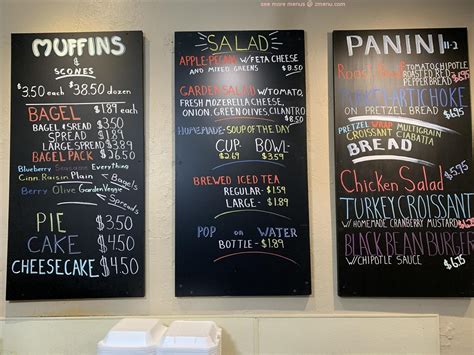 see more menus @ zmenu.com
MUFFINS
& SCONES
$3.50 each $38.50 dozen
BAGEL $1.89 each
BAGEL & SPREAD $3.50
SPREAD $1.89
LARGE SPREAD $3.89
BAGEL PACK $36.50
Blueberry Sesame Everything
Cinn. Raisin Plain Bagels
Berry Olive Garden Veggie
Spreads
PIE $3.50
CAKE $4.50
CHEESECAKE $4.50
SALAD
APPLE-PECAN W/FETA CHEESE
AND MIXED GREENS $8.50
GARDEN SALAD W/TOMATO,
FRESH MOZERELLA CHEESE,
ONION, GREEN OLIVES, CILANTRO
$8.50
HOMEMADE SOUP OF THE DAY
CUP BOWL
$2.69 $3.59
BREWED ICED TEA
REGULAR - $1.59
LARGE - $1.89
POP OR WATER
BOTTLE - $1.89
PANINI 11-2
Roast Beef TOMATO CHIPOTLE
ROASTED RED
PEPPER BREAD
TURKEY ARTICHOKE
ON PRETZEL BREAD $6.75
PRETZEL WRAP MULTIGRAIN
CROISSANT CIABATTA
BREAD
Chicken Salad $6.75
TURKEY CROISSANT
W/HOMEMADE CRANBERRY MUSTARD $6.75
BLACK BEAN BURGER
W/CHIPOTLE SAUCE $6.75